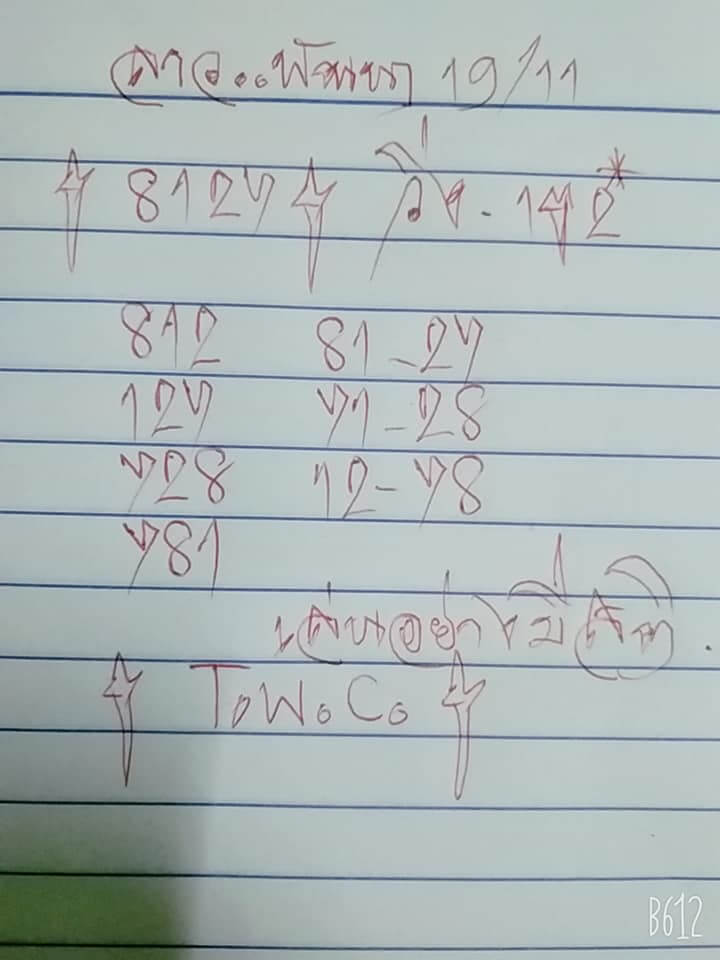 ลาว..พัฒนา 19/11
8127 วิ่ง - 172*
812 81-27
127 71-28
728 12-78
781
เล่นอย่างมีสติ.
T.W.C.
B612